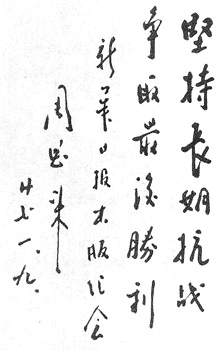 堅持长期抗战
争取最後勝利
新华日报出版纪念
周恩来
廿七.一.九.